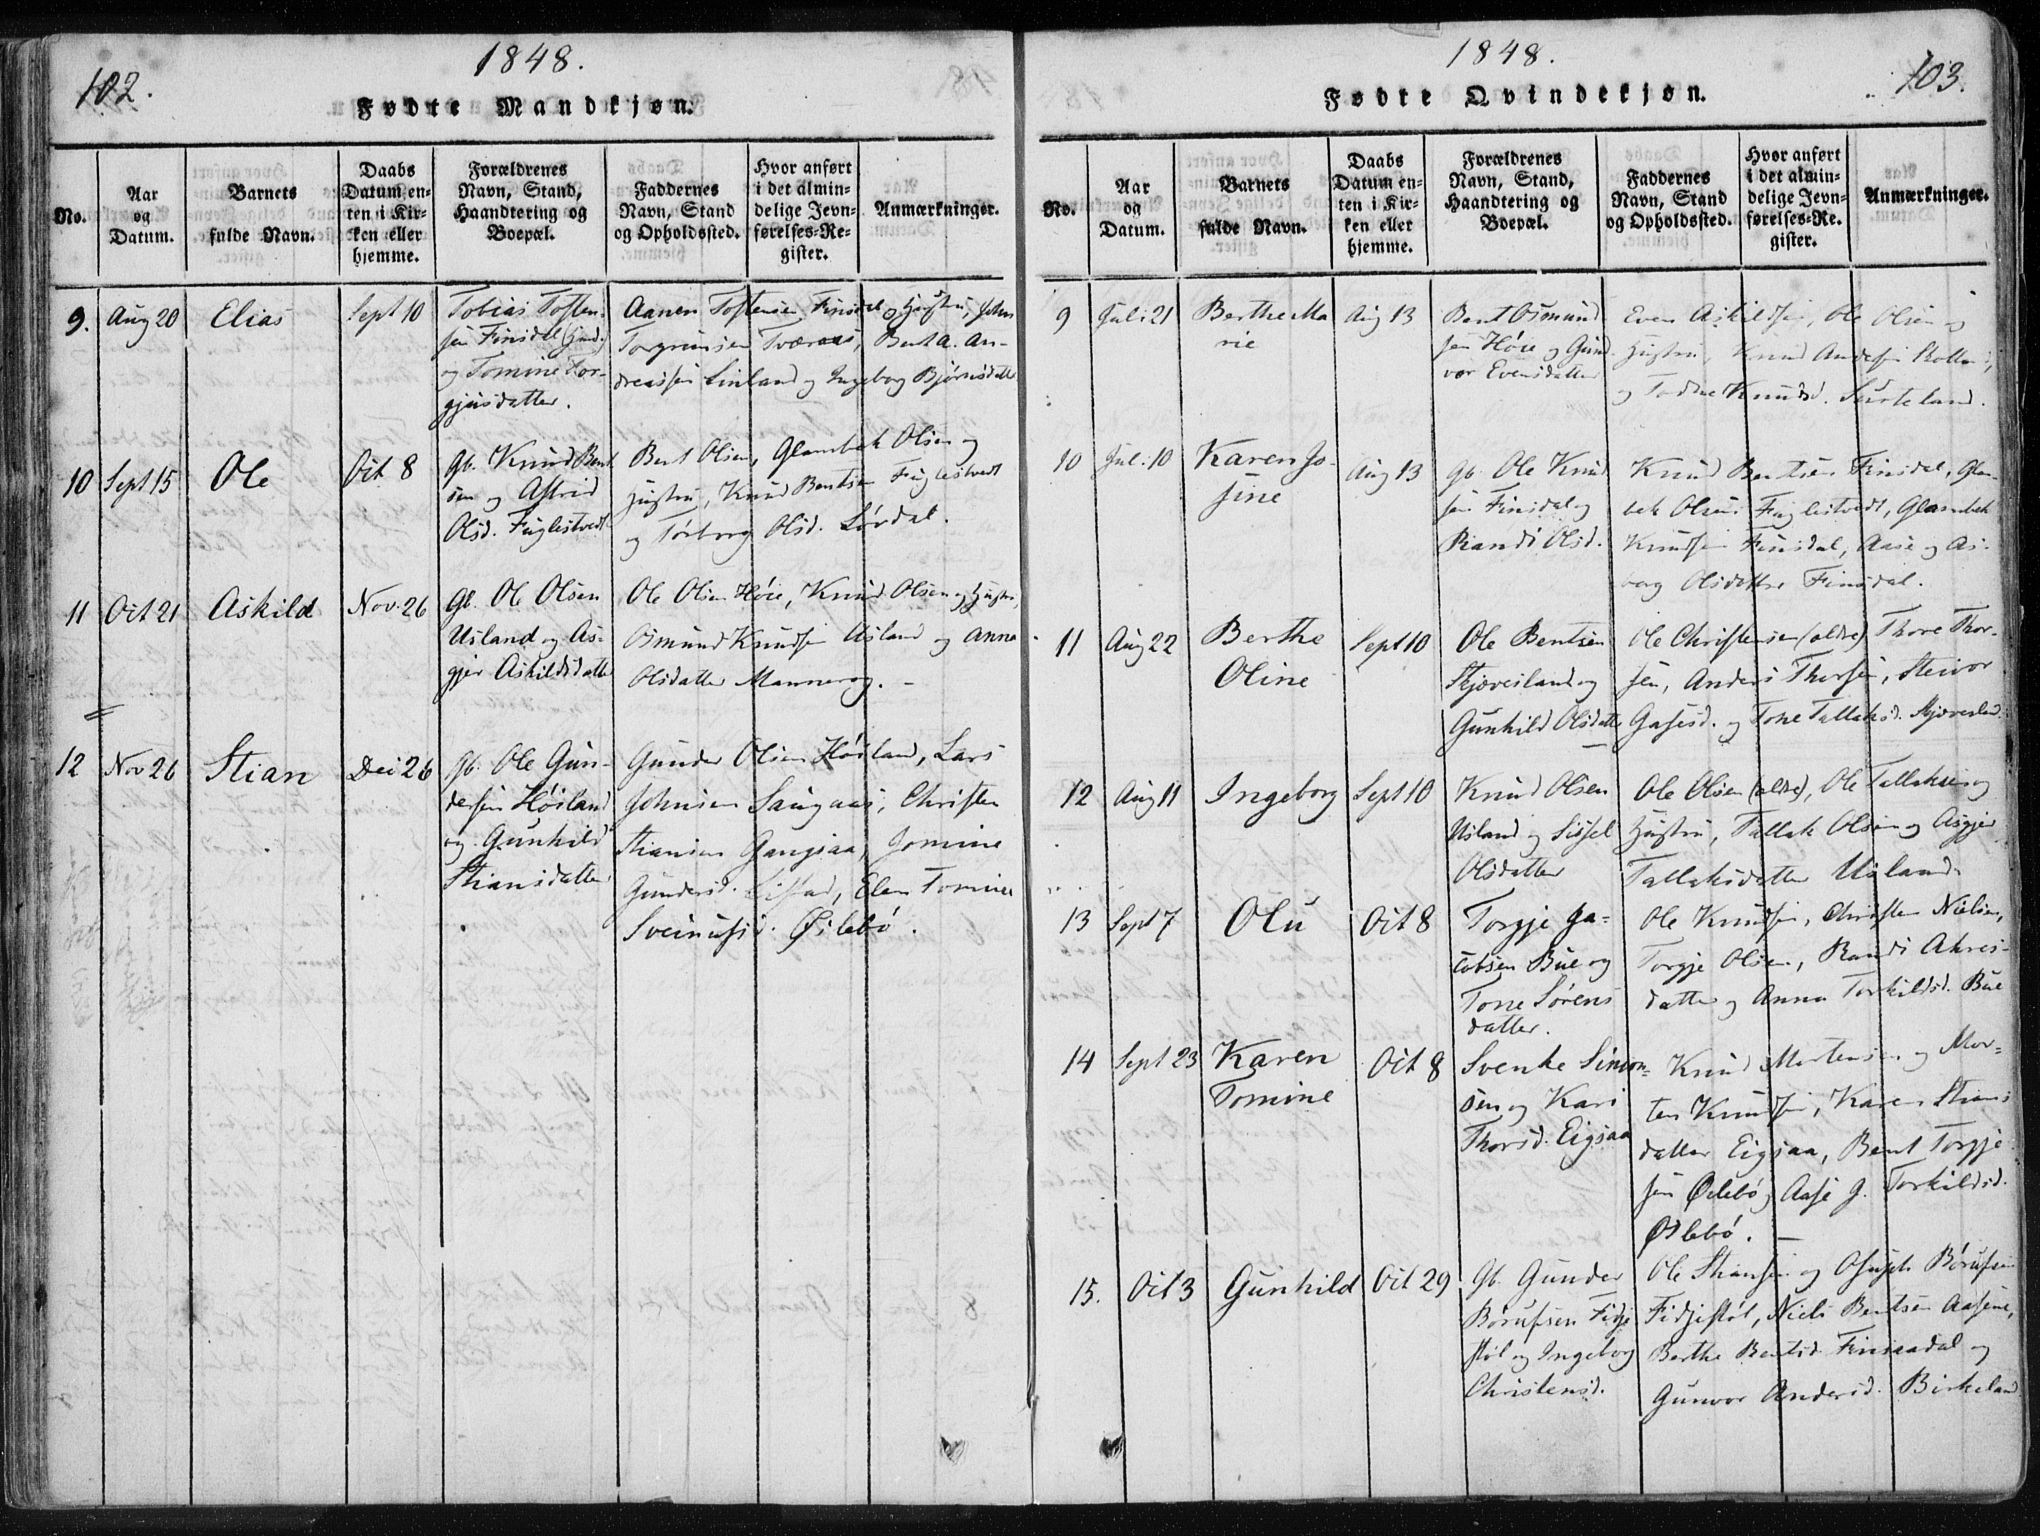 102.
1848.
Fødte Mandkjøn.
No.
Aar
og
Datum.
Barnets
fulde Navn.
Daabs
Datum en-
ten i Kir-
ken eller
hjemme.
Forældrenes
Navn, Stand,
Haandtering og
Boepæl.
Faddernes
Navn, Stand
og Opholdssted.
Hvor anført
i det almin-
delige Jevn-
førelses-Re-
gister.
Anmærkninger.
9. Aug 20 Elias Sept 10
Tobias Tosten-
sen Finsdal
og Tomine Tor-
gjusdatter.
Aanen Tostensen Finsdal og Hustru, John
Torgrimsen Tveraas, Bent A. An-
dreassen Linland og Ingeborg Bjørnsdatter
10 Sept 15 Ole Oct 8
Gb. Knud Bent
sen og Astrid
Olsd. Fuglestvedt
Bent Olsen, Glambek Olsen og
Hustru, Knud Bentsen Fuglestvedt
og Torborg Olsd. Lørdal.
11 Oct 21 Askild Nov. 26
Gb. Ole Olsen
Usland og As-
gjer Askildsdatter
Ole Olsen Høie, Knud Olsen og Hustru,
Osmund Knudsen Usland og Anna
Olsdatter Mannerog. -
12 Nov 26 Stian Dec 26
Gb. Ole Gun-
dersen Høiland
og Gunhild
Stiansdatter
Gunder Olsen Høiland, Lars
Johnsen Saugaas, Christen
Stiansen Gangsaa, Jomine
Gundersd. Elen Tomine
Sveinusd. Øslebø.
103.
1848.
Fødte Qvindekjøn.
No.
Aar
og
Datum.
Barnets
fulde Navn.
Daabs
Datum en-
ten i Kir-
ken eller
hjemme.
Forældrenes
Navn, Stand,
Haandtering og
Boepæl.
Faddernes
Navn, Stand
og Opholdssted.
Hvor anført
i det almin-
delige Jevn-
førelses-Re-
gister.
Anmærkninger.
9 Juli 21 Berthe Ma
rie
Aug 13
Bent Osmund
sen Høie og Gun
vor Evensdatter
Even Askildsen, Ole Olsen og
Hustru, Knud Andersen
og Todne Knudsd. Surteland.
10 Jul. 10 Karen Jo-
sine
Aug 13
Gb. Ole Knud
sen Finsdal og
Randi Olsd.
Knud Bentsen Finsdal, Glam-
bek Olsen Fuglestvedt, Glambek
Knudsen Finsdal, Aase og As-
borg Olsdatter Finsdal.
11 Aug 22 Berthe
Oline
Sept 10
Ole Bentsen
Stjøveiland og
Gunhild Olsdatter
Ole Christensen (eldre) Thore Thor-
sen, Anders Thorsen, Steivor
Gasesd. og Tone Tallaksd. Stjøveiland.
12 Aug 11 Ingeborg Sept 10
Knud Olsen
Usland og Sissel
Olsdatter
Ole Olsen (eldre), Ole Tallaksen og
Hustru, Tallak Olsen og Asgjer
Tallaksdatter Usland.
13 Sept 7 Olu Oct 8
Torgje Ja-
cobsen Bue og
Tone Sørens
datter.
Ole Knudsen, Christen Nielsen,
Torgje Olsen, Randi Akres-
datter og Anna Torkildsd. Bue
14 Sept 23 Karen
Tomine
Oct 8
Svenke Simon-
sen og Kari
Thorsd. Eigsaa
Knud Mortensen og Mor-
ten Knudsen, Karen Stians
datter Eigsaa, Bent Torgje
sen Øslebø, Aase G. Torkildsd.
Øslebø. -
15. Oct 3 Gunhild Oct 29
Gb. Gunder
Børufsen Fidje
støl og Ingeborg
Christensd.
Ole Stiansen og Osuph Børufsen
Fidjestøl, Niels Bentsen Aasene,
Berthe Bentsd. Finsaadal og
Gunvor Andersd. Birkeland